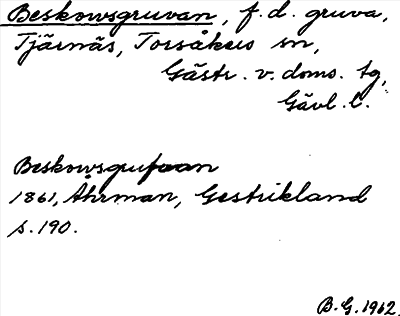 Beskowsgruvan, f.d. gruva,
Tjärnäs, Torsåkers sn,
Gästr. v. doms. tg,
Gävl. l.
Beskowsgrufvan
1861, Ahrman, Gestrikland
s. 190.
B.G. 1962.